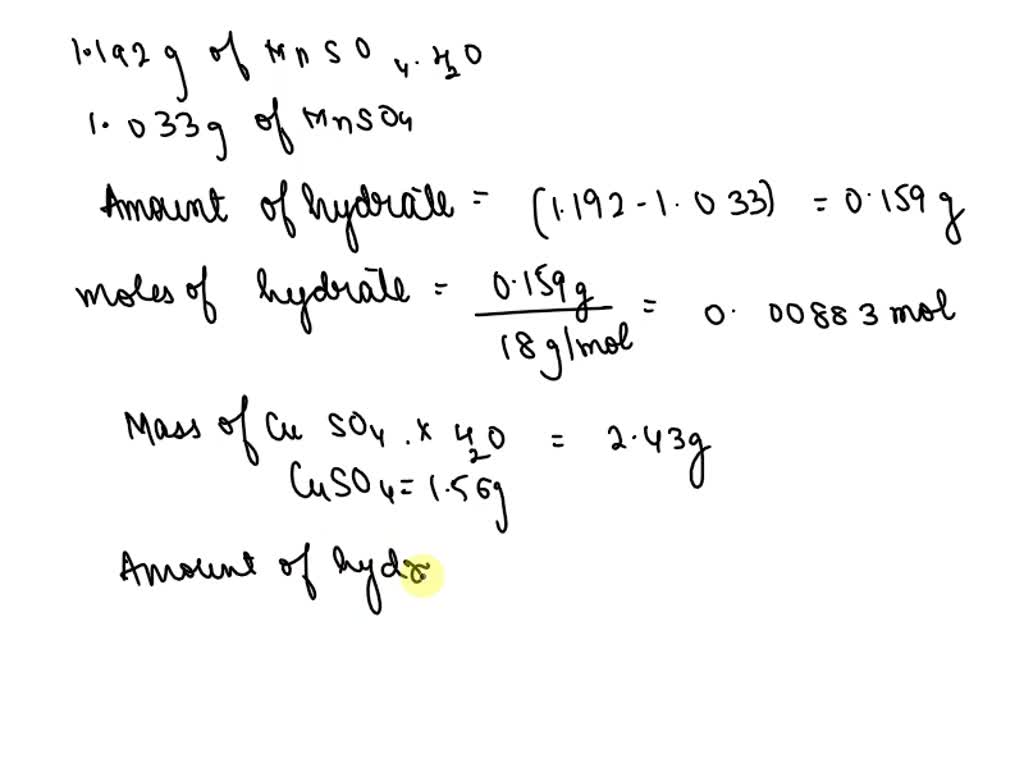 1.192g of MnSO4.H2O
1.033g of MnSO4
Amount of hydrate = (1.192-1.033) = 0.159 g
moles of hydrate = 0.159g / 18 g/mol = 0.00883 mol
Mass of CuSO4.xH2O = 2.43g
CuSO4 = 1.56g
Amount of hydr